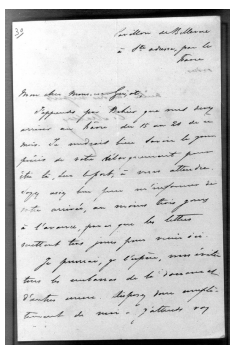 39
Pavillon de Bellevue
à Ste adresse, par le
Havre
Mon cher Monsieur
J'apprends par que vous devez
arriver au Havre du 15 au 20 de ce
mois. Je voudrais bien savoir le
de votre débarquement pour
être là, tout à vous attendre.
Soyez assez bon pour m'informer de
votre arrivée, au moins trois jours
à l'avance, parce que les lettres
mettent trois jours pour venir ici.
Je pourrai, je l'espère, vous éviter
tous les embarras de la douane et
d'autres encore. Disposez donc complè-
tement de moi. J'attends vos